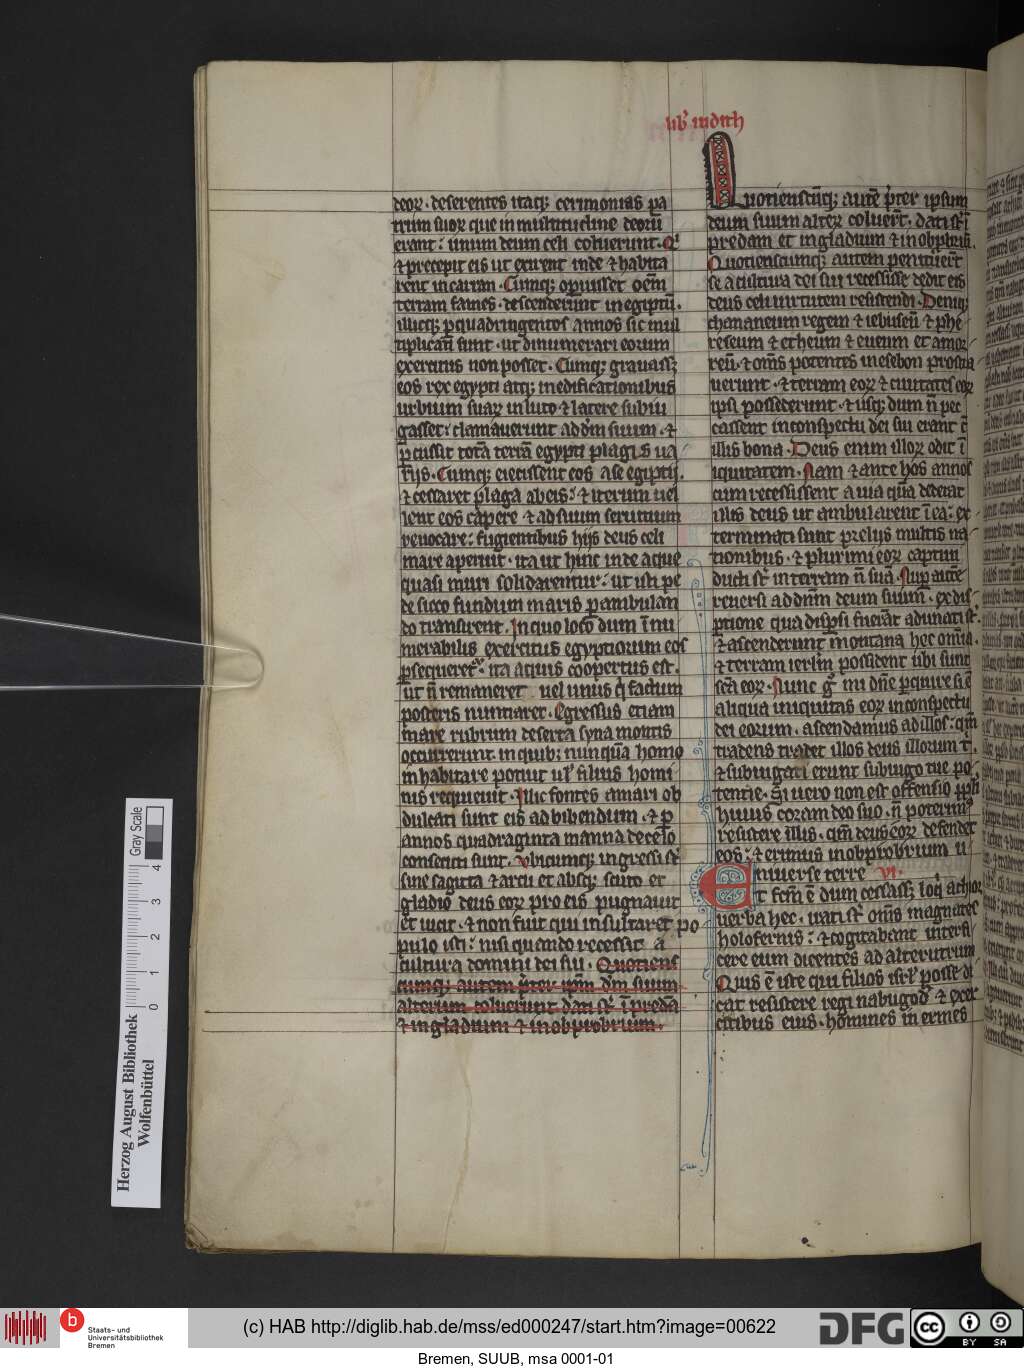 lib' iudith
deor̄. deserentes itaq; cerimonias pa
trum suor̄ que in multitudine deorū
erant: unum deum celi coluerunt. Qi
⁊ precepit eis ut exirent inde ⁊ habita
rent in carran. Cumq; operuisset oēm
terram fames. descenderunt in egiptū.
illicq; p quadringentos annos sic mul
tiplicati sunt. ut dinumerari eorum
exercitus non posset. Cumq; grauass;
eos rex egypti atq; in edificationibus
urbium suar̄ in luto ⁊ latere subiu
gasset: clamauerunt ad dm̄ suum. ⁊
pcussit totā terrā egypti plagis ua
riis. Cumq; eiecissent eos a se egiptii.
⁊ cessaret plaga ab eis: ⁊ iterum uel
lent eos capere ⁊ ad suum seruitium
reuocare: fugientibus hiis deus celi
mare aperuit. ita ut hinc inde aque
quasi muri solidarentur: ut isti pe
de sicco fundum maris pambulan
do transirent. In quo loco dum īnu
merabilis exercitus egyptiorum eos
psequeretur. ita aquis coopertus est.
ut ñ remaneret uel unus q̇ factum
posteris nuntiaret. Egressus etiam
mare rubrum deserta syna montis
occurrerunt. in quib; nunquā homo
in habitare potuit ul' filius homi
nis requieuit. Illic fontes amari ob
dulcati sunt eis ad bibendum. ⁊ p
annos quadraginta manna de celo
consecuti sunt. Vbicumq; ingressi st̄
sine sagitta ⁊ arcu et absq; scuto et
gladio deus eor̄ pro eis pugnauit
et uicit. ⁊ non fuit qui insultaret po
pulo isti: nisi quando recessit a
cultura domini dei sui. Quotiens
cumq; autem pṫer ipm̄ dm̄ suum
alterum coluerunt dati st̄ ī predā
⁊ in gladium ⁊ in obprobrium.
Quotienscūq; autē pṫer ipsum
deum suum alter̄ coluert̄. dati st̄ ī
predam et in gladium ⁊ in obpbriū.
Quotienscumq; autem penituert̄
se a cultura dei sui recessisse dedit eis
deus celi uirtutem resistendi. Deniq;
chananeum regem ⁊ iebuseū ⁊ phe
reseum ⁊ etheum ⁊ eueum et amor
reū. ⁊ om̄s potentes in esebon prostra
uerunt. ⁊ terram eor̄ ⁊ ciuitates eor̄
ipsi possederunt. ⁊ usq; dum ñ pec
cassent in conspectu dei sui erant c̄
illis bona. Deus enim illor̄ odit ī
iquitatem. Nam ⁊ ante hos annos
cum recessissent a uia quā dederat
illis deus ut ambularent ī ea: ex
terminati sunt preliis multis na
tionibus. ⁊ plurimi eor̄ captiui
ducti st̄ in terram ñ suā. Nup autē
reuersi ad dn̄m deum suum. ex dis
ptione qua dispsi fuerāt adunati st̄.
⁊ ascenderunt in montana hec om̄ia.
⁊ terram ierl̄m possident ubi sunt
sc̄a eor̄. Nunc g° mi dn̄e pquire si ē
aliqua iniquitas eor̄ in conspectu
dei eorum. ascendamus ad illos: qm̄
tradens tradet illos deus illorum t'.
⁊ subiugati erunt sub iugo tue po
tentie. Si uero non est offensio ppl'i
huius coram deo suo. ñ poterimꝰ
resistere illis. qm̄ deus eor̄ defendet
eos: ⁊ erimus in obprobrium u
niuerse terre VI.
Et fcm̄ ē dum cessass; loq̇ achior
uerba hec. irati st̄ om̄s magnates
holofernis: ⁊ cogitabant interfi
cere eum dicentes ad alterutrum
Quis ē iste qui filios isr̄l' posse di
cat resistere regi nabugod' ⁊ exer
citibus eius. homines in ermes
Herzog August Bibliothek
Wolfenbüttel
0 1 2 3 4
Gray Scale
b
Staats- und
Universitätsbibliothek
Bremen
(c) HAB http://diglib.hab.de/mss/ed000247/start.htm?image=00622
DFG
cc BY SA
Bremen, SUUB, msa 0001-01